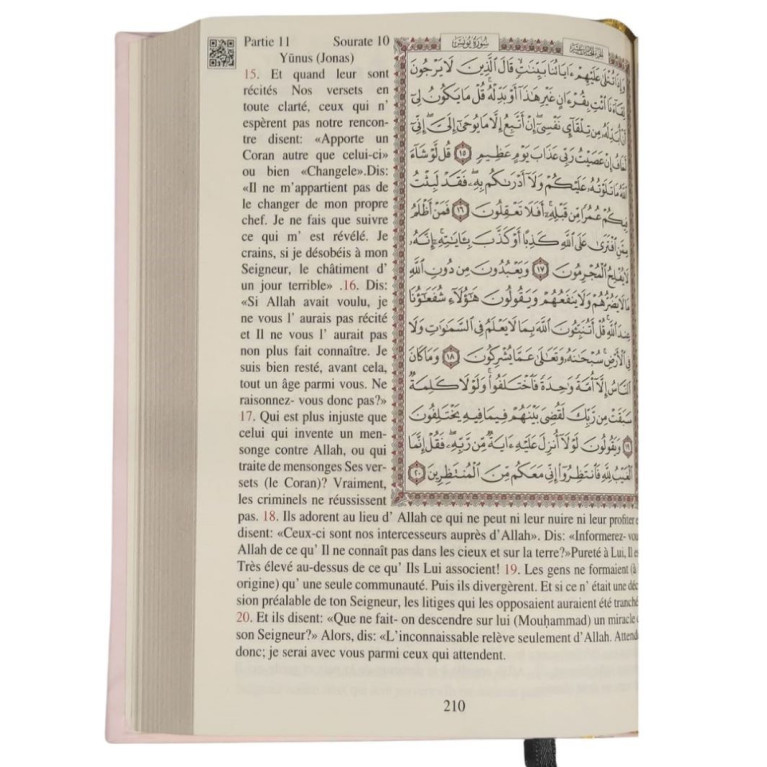 Partie 11 Sourate 10
Yūnus (Jonas)
15. Et quand leur sont
récités Nos versets en
toute clarté, ceux qui n'
espèrent pas notre rencon-
tre disent: «Apporte un
Coran autre que celui-ci»
ou bien «Changele».Dis:
«Il ne m'appartient pas de
le changer de mon propre
chef. Je ne fais que suivre
ce qui m' est révélé. Je
crains, si je désobéis à mon
Seigneur, le châtiment d'
un jour terrible» .16. Dis:
«Si Allah avait voulu, je
ne vous l' aurais pas récité
et Il ne vous l' aurait pas
non plus fait connaître. Je
suis bien resté, avant cela,
tout un âge parmi vous. Ne
raisonnez- vous donc pas?»
17. Qui est plus injuste que
celui qui invente un men-
songe contre Allah, ou qui
traite de mensonges Ses ver-
sets (le Coran)? Vraiment,
les criminels ne réussissent
pas. 18. Ils adorent au lieu d' Allah ce qui ne peut ni leur nuire ni leur profiter
disent: «Ceux-ci sont nos intercesseurs auprès d'Allah». Dis: «Informerez-
Allah de ce qu' Il ne connaît pas dans les cieux et sur la terre?»Pureté à Lui, Il
Très élevé au-dessus de ce qu' Ils Lui associent! 19. Les gens ne formaient (à
origine) qu' une seule communauté. Puis ils divergèrent. Et si ce n' était une
sion préalable de ton Seigneur, les litiges qui les opposaient auraient été tranché
20. Et ils disent: «Que ne fait- on descendre sur lui (Mouḥammad) un miracle
son Seigneur?» Alors, dis: «L'inconnaissable relève seulement d'Allah.
donc; je serai avec vous parmi ceux qui attendent.
سُورَةُ يُونُسَ
وَإِذَا تُتْلَىٰ عَلَيْهِمْ ءَايَاتُنَا بَيِّنَٰتٍ قَالَ ٱلَّذِينَ لَا يَرْجُونَ
لِقَآءَنَا ٱئْتِ بِقُرْءَانٍ غَيْرِ هَٰذَآ أَوْ بَدِّلْهُ ۚ قُلْ مَا يَكُونُ لِىٓ
أَنْ أُبَدِّلَهُۥ مِن تِلْقَآئِ نَفْسِىٓ ۖ إِنْ أَتَّبِعُ إِلَّا مَا يُوحَىٰٓ إِلَىَّ ۖ إِنِّىٓ
أَخَافُ إِنْ عَصَيْتُ رَبِّى عَذَابَ يَوْمٍ عَظِيمٍ ١٥ قُل لَّوْ شَآءَ
ٱللَّهُ مَا تَلَوْتُهُۥ عَلَيْكُمْ وَلَآ أَدْرَىٰكُم بِهِۦ ۖ فَقَدْ لَبِثْتُ
فِيكُمْ عُمُرًا مِّن قَبْلِهِۦٓ ۚ أَفَلَا تَعْقِلُونَ ١٦ فَمَنْ أَظْلَمُ
مِمَّنِ ٱفْتَرَىٰ عَلَى ٱللَّهِ كَذِبًا أَوْ كَذَّبَ بِـَٔايَٰتِهِۦٓ ۚ إِنَّهُۥ
لَا يُفْلِحُ ٱلْمُجْرِمُونَ ١٧ وَيَعْبُدُونَ مِن دُونِ ٱللَّهِ
مَا لَا يَضُرُّهُمْ وَلَا يَنفَعُهُمْ وَيَقُولُونَ هَٰٓؤُلَآءِ شُفَعَٰٓؤُنَا
عِندَ ٱللَّهِ ۚ قُلْ أَتُنَبِّـُٔونَ ٱللَّهَ بِمَا لَا يَعْلَمُ فِى ٱلسَّمَٰوَٰتِ وَلَا
فِى ٱلْأَرْضِ ۚ سُبْحَٰنَهُۥ وَتَعَٰلَىٰ عَمَّا يُشْرِكُونَ ١٨ وَمَا كَانَ
ٱلنَّاسُ إِلَّآ أُمَّةً وَٰحِدَةً فَٱخْتَلَفُوا۟ ۚ وَلَوْلَا كَلِمَةٌ
سَبَقَتْ مِن رَّبِّكَ لَقُضِىَ بَيْنَهُمْ فِيمَا فِيهِ يَخْتَلِفُونَ
١٩ وَيَقُولُونَ لَوْلَآ أُنزِلَ عَلَيْهِ ءَايَةٌ مِّن رَّبِّهِۦ ۖ فَقُلْ إِنَّمَا
ٱلْغَيْبُ لِلَّهِ فَٱنتَظِرُوٓا۟ إِنِّى مَعَكُم مِّنَ ٱلْمُنتَظِرِينَ ٢٠
210